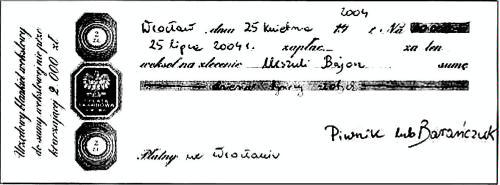 2004
Wrocław, dnia 25 kwietnia 19 r. Na
25 lipca 2004 r. zapłac za ten
weksel na zlecenie Urszuli Bojan sumę
złotych
Piwnik lub Barańczuk
Płatny we Wrocławiu
Urzędowy blankiet wekslowy
do sumy wekslowej nie prze-
kraczającej 2 000 zł.
2
ZŁ
OPŁATA
SKARBOWA
2
ZŁ